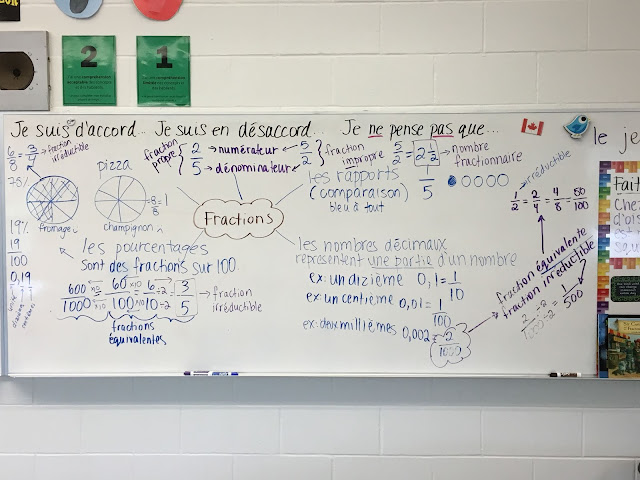 2
1
Je suis d'accord... Je suis en désaccord... Je ne pense pas que...
le je
6/8 = 3/4 → fraction irréductible
75%
pizza
fromage
champignon
8/8 = 1
fraction propre { 2/5
numérateur
dénominateur
5/2 } fraction impropre
5/2 = 2 1/2 → nombre fractionnaire
Fractions
les rapports
(comparaison)
bleu à tout
1/5
irréductible
1/2 = 2/4 = 4/8 = 50/100
fraction équivalente
fraction irréductible
19%
19/100
0,19
les pourcentages
sont des fractions sur 100
600÷10/1000÷10 = 60÷10/100÷10 = 6÷2/10÷2 = 3/5 → fraction irréductible
fractions
équivalentes
les nombres décimaux
représentent une partie d'un nombre
ex: un dizième 0,1 = 1/10
ex: un centième 0,01 = 1/100
ex: deux millièmes 0,002 = 2/1000
2÷2/1000÷2 = 1/500
Fait
Chez
d'an